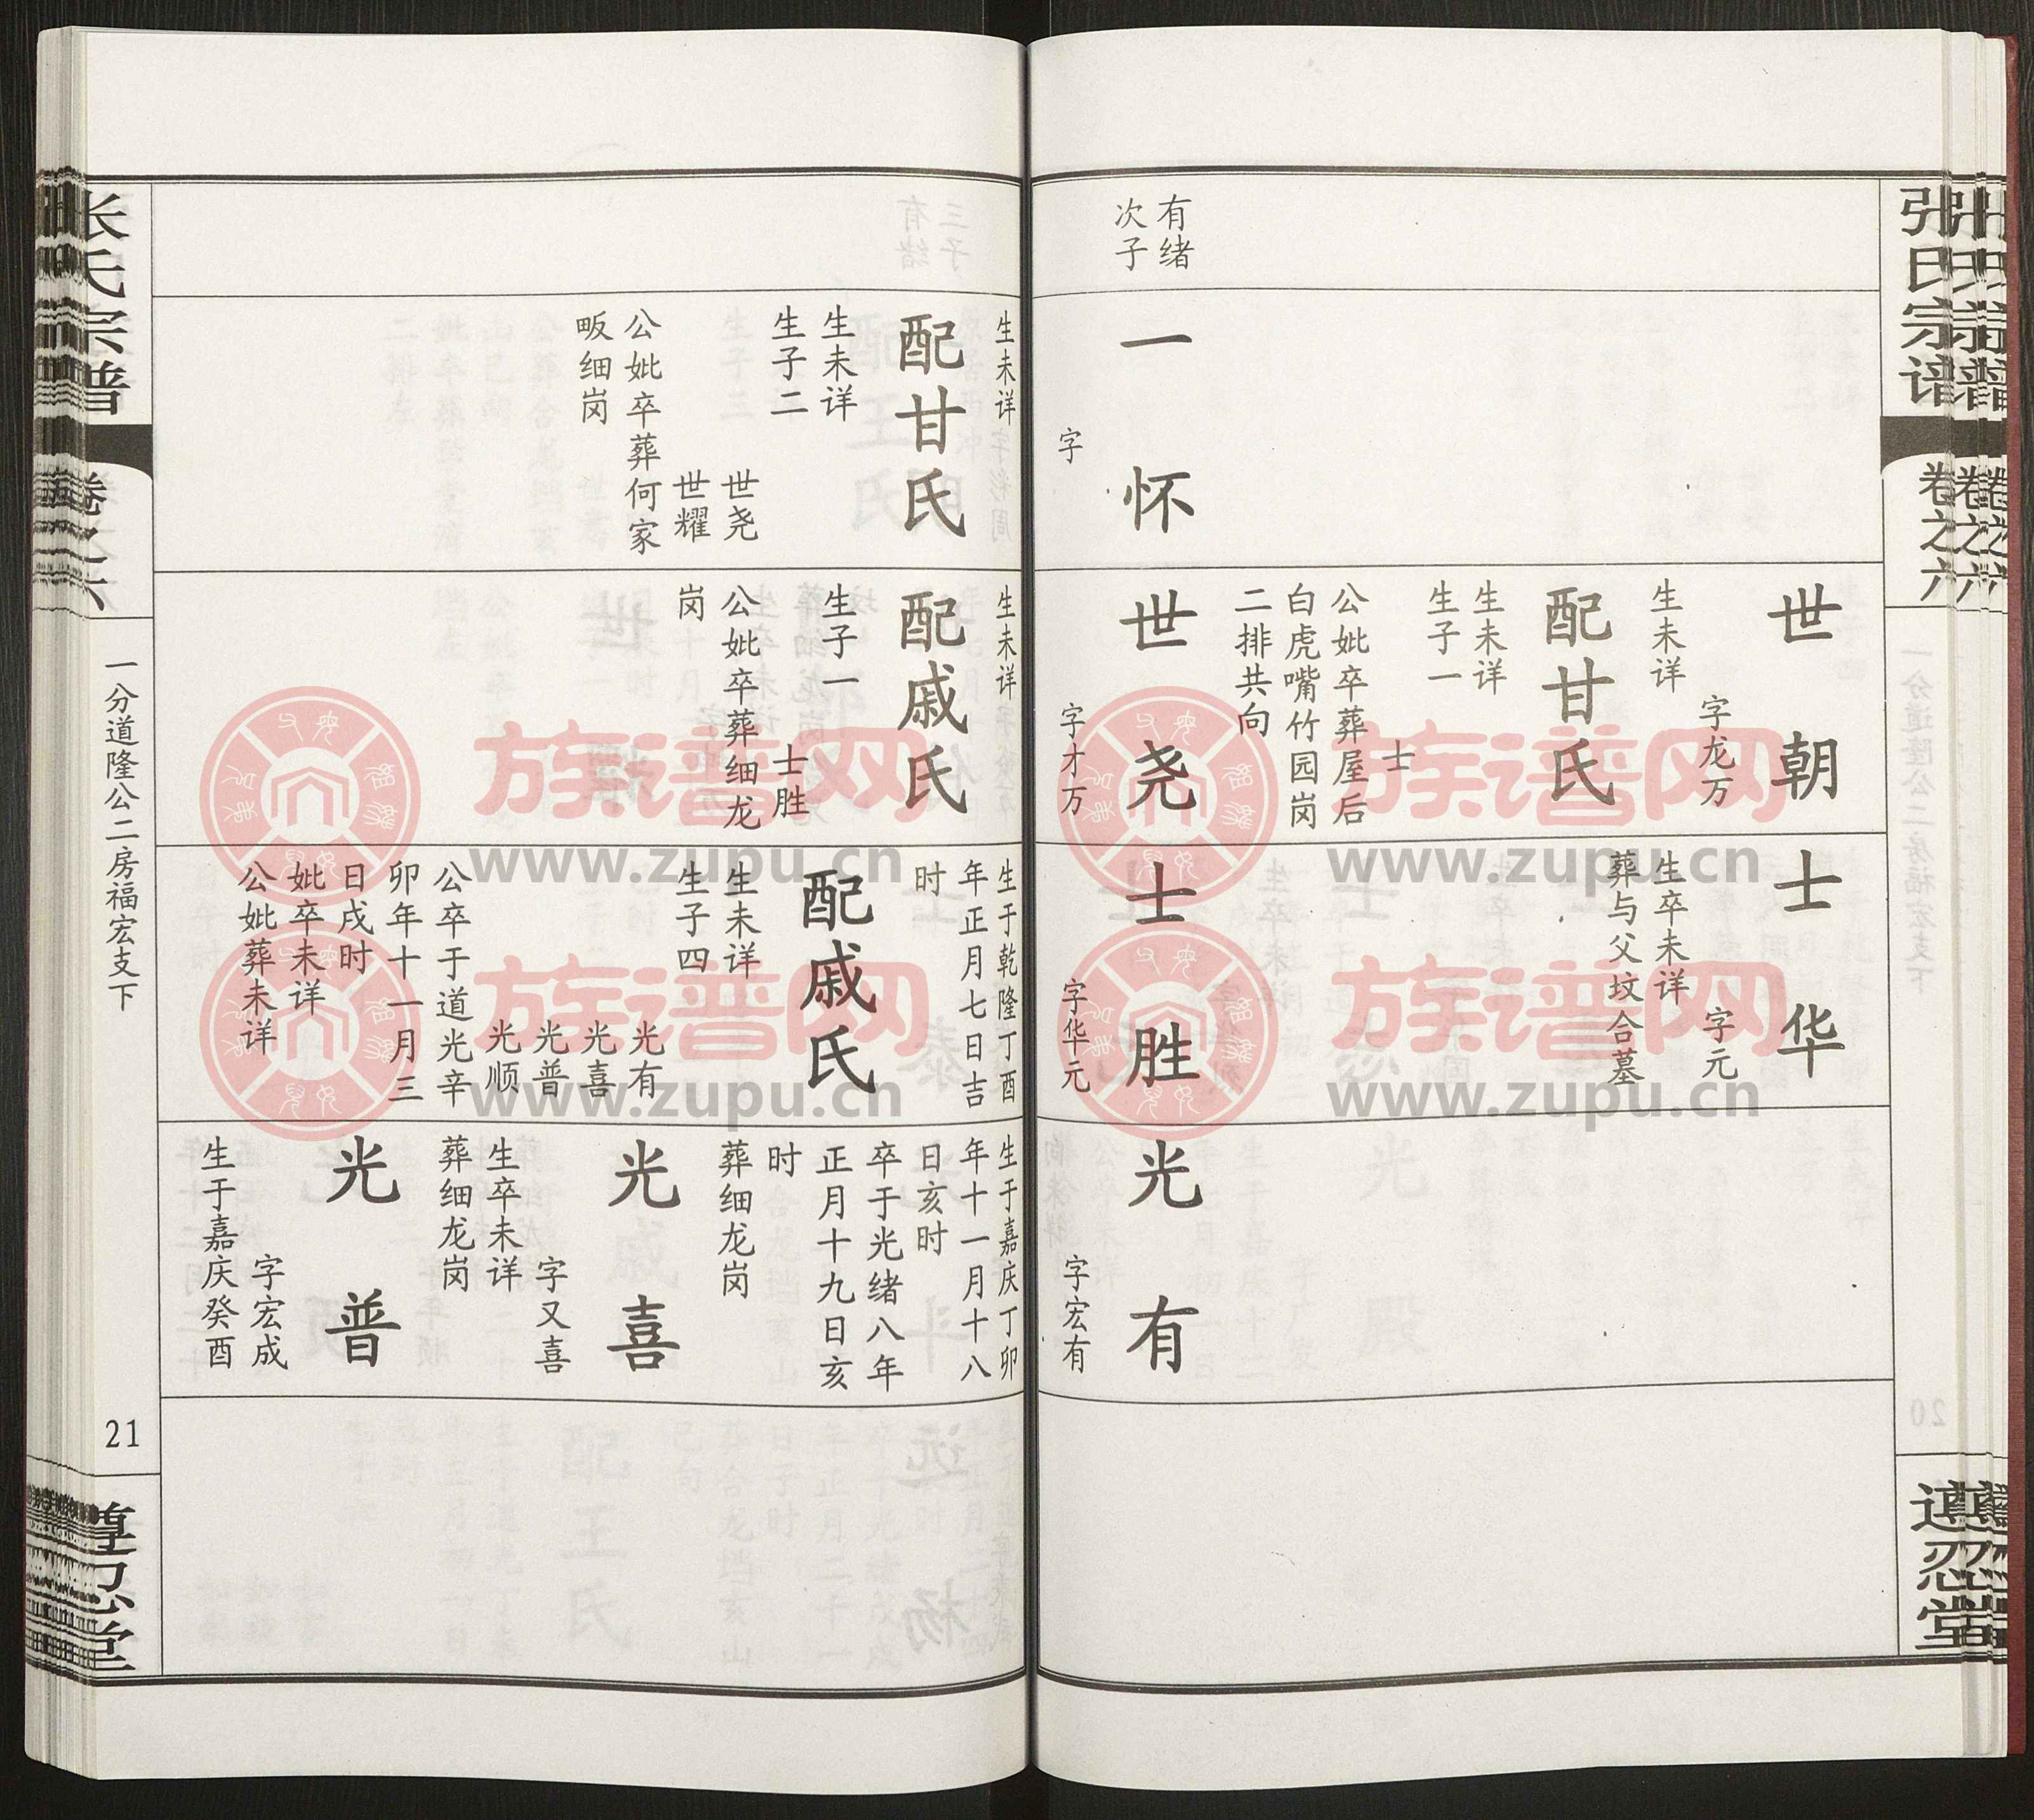 张氏宗谱
卷之六
遵忍堂
有绪
次子
一怀
字
世朝
字龙万
生未详
配甘氏
生未详
生子一
士
公妣卒葬屋后
白虎嘴竹园岗
二排共向
世尧
字才万
士华
字元
生卒未详
葬与父坟合墓
士胜
字华元
光有
字宏有
生未详
配甘氏
生未详
生子二
世尧
世耀
公妣卒葬何家
畈细岗
生未详
配戚氏
生子一
士胜
公妣卒葬细龙
岗
生于乾隆丁酉
年正月七日吉
时
配戚氏
生未详
生子四
光有
光喜
光普
光顺
公卒于道光辛
卯年十一月三
日戌时
妣卒未详
公妣葬未详
生于嘉庆丁卯
年十一月十八
日亥时
卒于光绪八年
正月十九日亥
时
葬细龙岗
光喜
字又喜
生卒未详
葬细龙岗
光普
字宏成
生于嘉庆癸酉
张氏宗谱
卷之六
一分道隆公二房福宏支下
21
遵忍堂
族谱网
www.zupu.cn
族谱网
www.zupu.cn
族谱网
www.zupu.cn
族谱网
www.zupu.cn